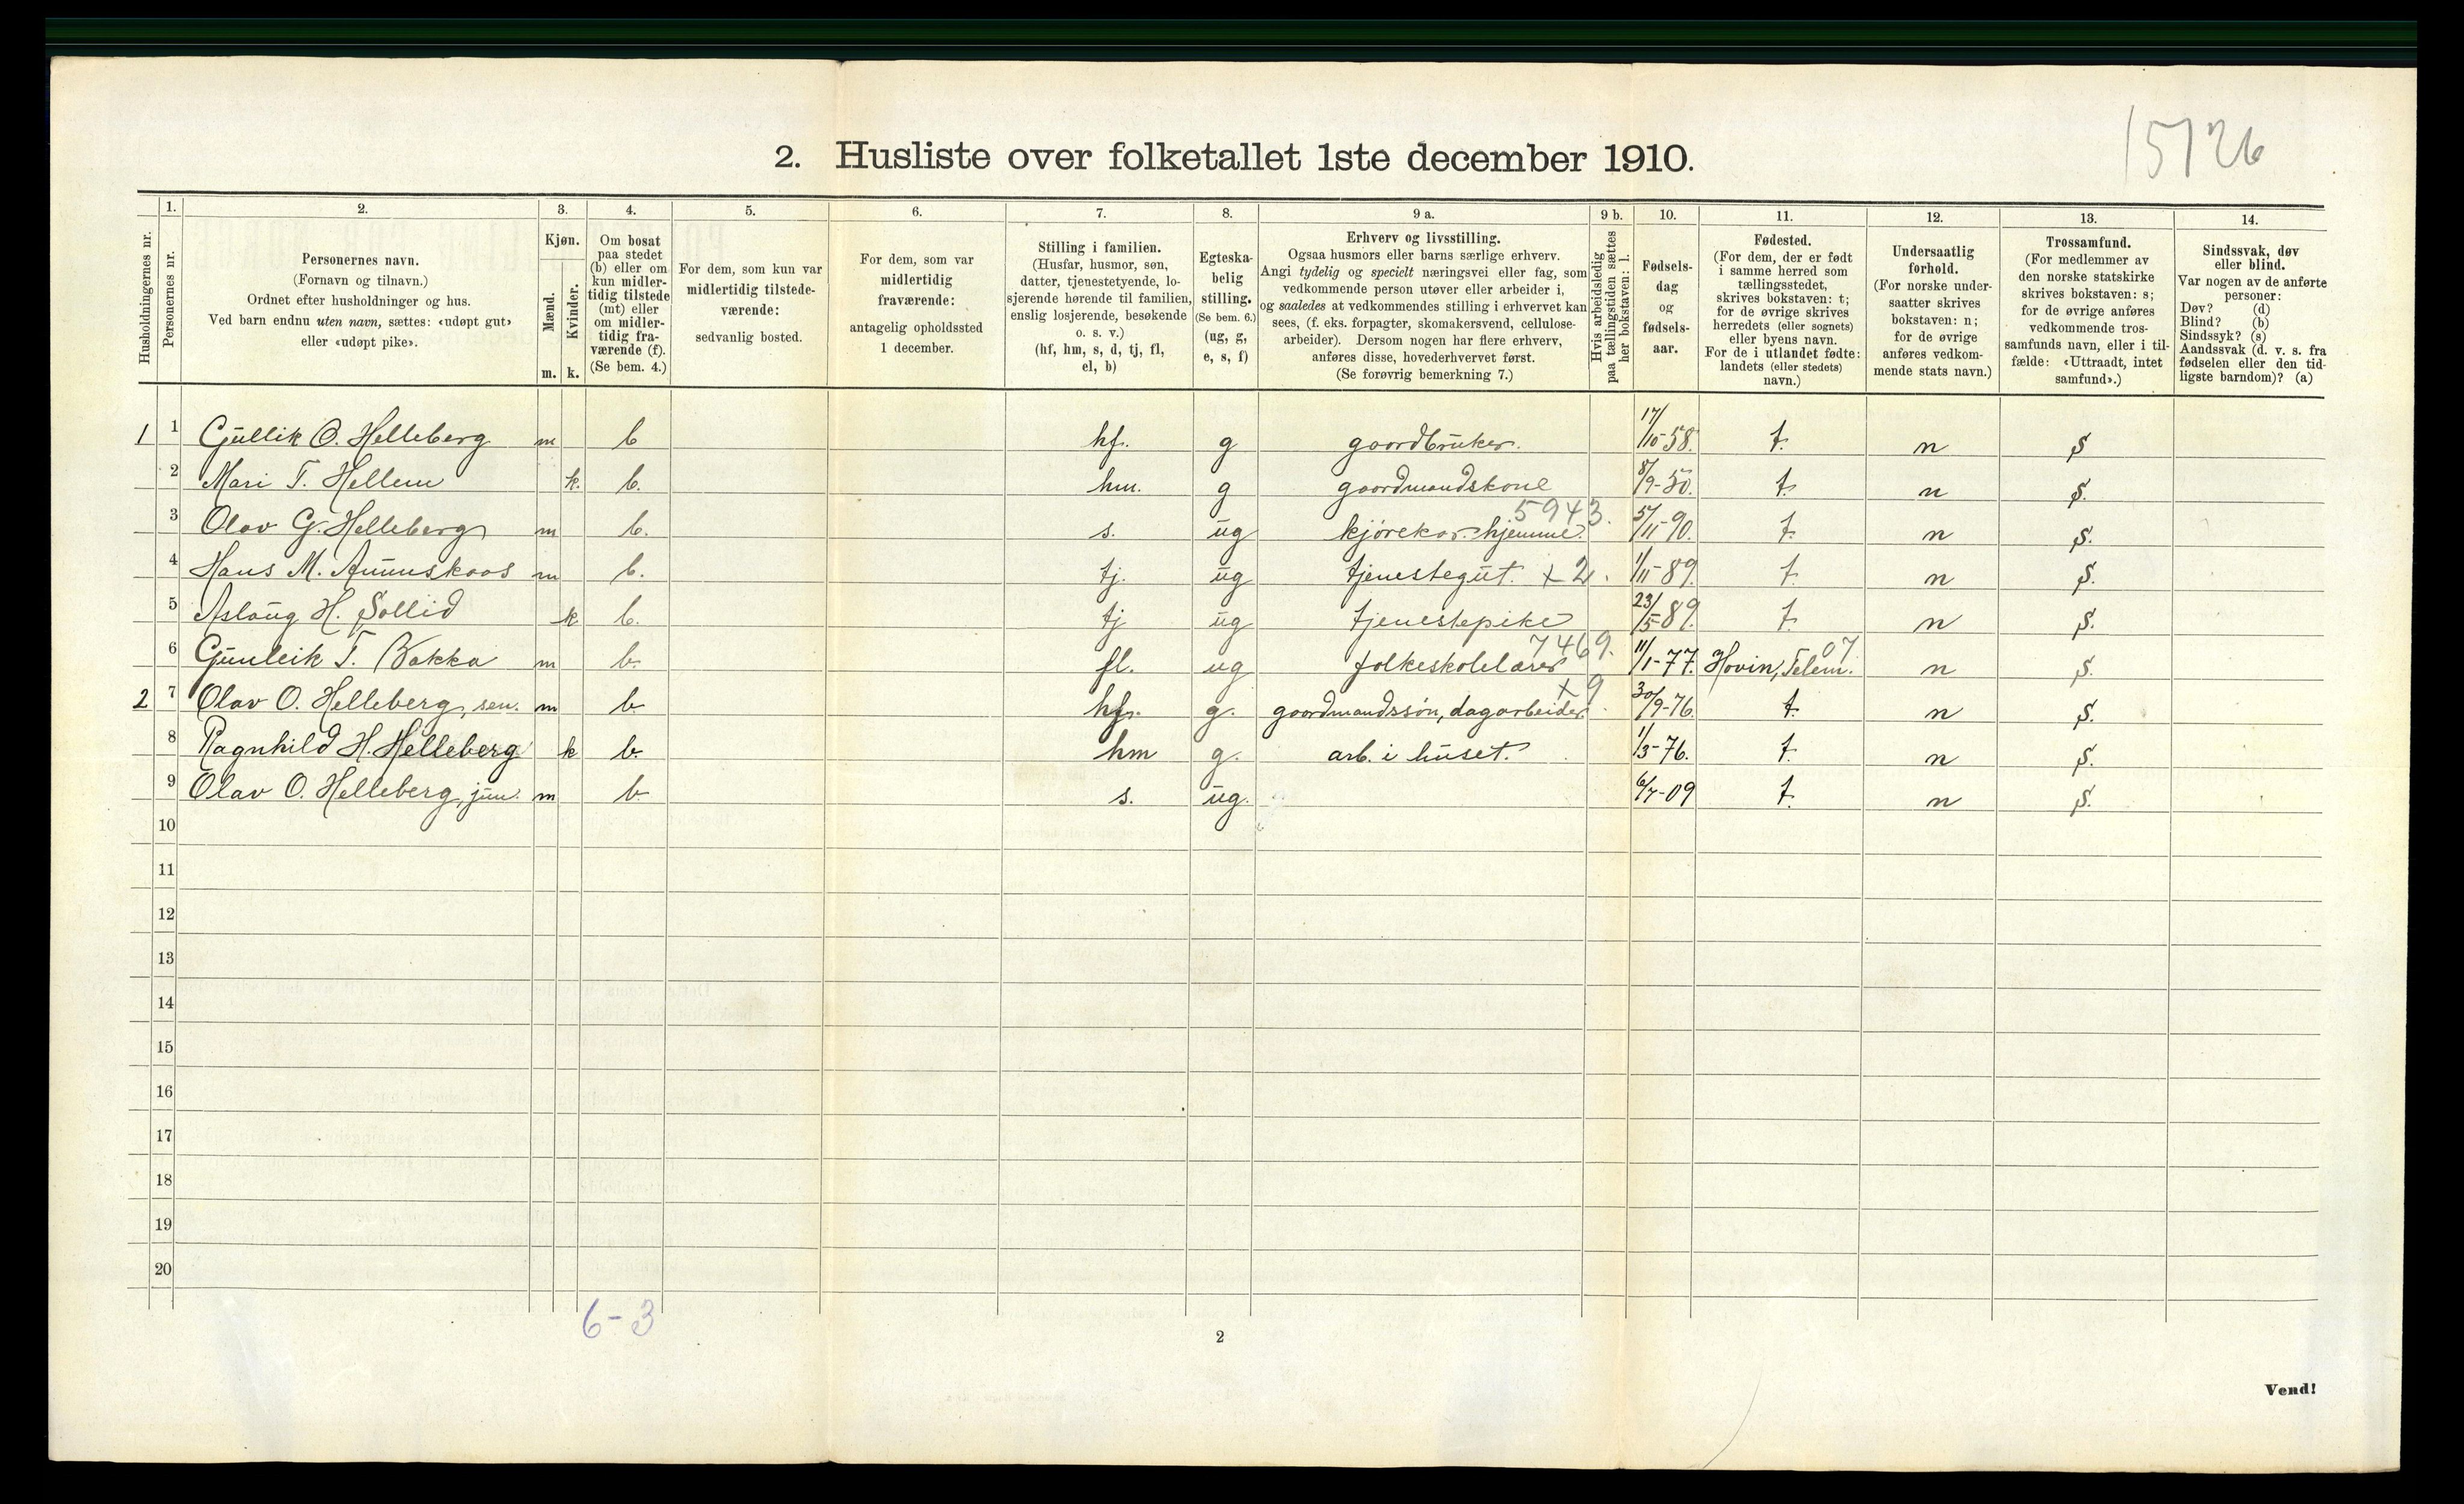 15126
2. Husliste over folketallet 1ste december 1910.
1. 2. 3. 4. 5. 6. 7. 8. 9 a. 9 b. 10. 11. 12. 13. 14.
Husholdningernes nr.
Personernes nr.
Personernes navn.
(Fornavn og tilnavn.)
Ordnet efter husholdninger og hus.
Ved barn endnu uten navn, sættes: «udøpt gut»
eller «udøpt pike».
Kjøn.
Mænd.
Kvinder.
m. k.
Om bosat
paa stedet
(b) eller om
kun midler-
tidig tilstede
(mt) eller
om midler-
tidig fra-
værende (f).
(Se bem. 4.)
For dem, som kun var
midlertidig tilstede-
værende:
sedvanlig bosted.
For dem, som var
midlertidig
fraværende:
antagelig opholdssted
1 december.
Stilling i familien.
(Husfar, husmor, søn,
datter, tjenestetyende, lo-
sjerende hørende til familien,
enslig losjerende, besøkende
o. s. v.)
(hf, hm, s, d, tj, fl,
el, b)
Egteska-
belig
stilling.
(Se bem. 6.)
(ug, g,
e, s, f)
Erhverv og livsstilling.
Ogsaa husmors eller barns særlige erhverv.
Angi tydelig og specielt næringsvei eller fag, som
vedkommende person utøver eller arbeider i,
og saaledes at vedkommendes stilling i erhvervet kan
sees, (f. eks. forpagter, skomakersvend, cellulose-
arbeider). Dersom nogen har flere erhverv,
anføres disse, hovederhvervet først.
(Se forøvrig bemerkning 7.)
Hvis arbeidsledig
paa tællingstiden sættes
her bokstaven: l.
Fødsels-
dag
og
fødsels-
aar.
Fødested.
(For dem, der er født
i samme herred som
tællingsstedet,
skrives bokstaven: t;
for de øvrige skrives
herredets (eller sognets)
eller byens navn.
For de i utlandet fødte:
landets (eller stedets)
navn.)
Undersaatlig
forhold.
(For norske under-
saatter skrives
bokstaven: n;
for de øvrige
anføres vedkom-
mende stats navn.)
Trossamfund.
(For medlemmer av
den norske statskirke
skrives bokstaven: s;
for de øvrige anføres
vedkommende tros-
samfunds navn, eller i til-
fælde: «Uttraadt, intet
samfund».)
Sindssvak, døv
eller blind.
Var nogen av de anførte
personer:
Døv? (d)
Blind? (b)
Sindssyk? (s)
Aandssvak (d. v. s. fra
fødselen eller den tid-
ligste barndom)? (a)
1 1 Gullik O. Helleberg m b hf. g gaardbruker. 17/10-58. t. n s
2 Mari T. Hellem k. b. hm. g gaardmandskone 8/9-50. t. n s.
5943.
3 Olav G. Helleberg m b. s. ug kjørekar hjemme. 5/11-90. t. n s.
4 Hans M. m b. tj. ug tjenestegut. + 2. 1/11-89. t. n s.
5 Aslaug H. Sollid k b. tj ug tjenestepike 23/5-89. t. n s.
7469. 07
6 Gunleik T. Bakka m b. fl. ug folkeskolelærer 11/1-77. Hovin, Telem. n s.
+ 9
2 7 Olav O. Helleberg, sen. m b. hf. g. gaardmandssøn, dagarbeider. 30/9-76. t. n s.
8 Ragnhild H. Helleberg k b. hm g. arb. i huset. 1/3-76. t. n s.
9 Olav O. Helleberg, jun. m b. s. ug. 6/7-09 t. n s.
10
11
12
13
14
15
16
17
18
19
20
6-3
2
Vend!